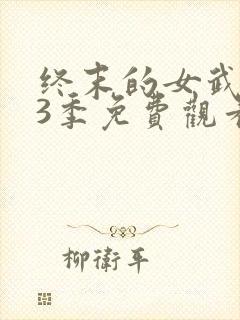 终末的女武
3季免費觀看
柳衛平